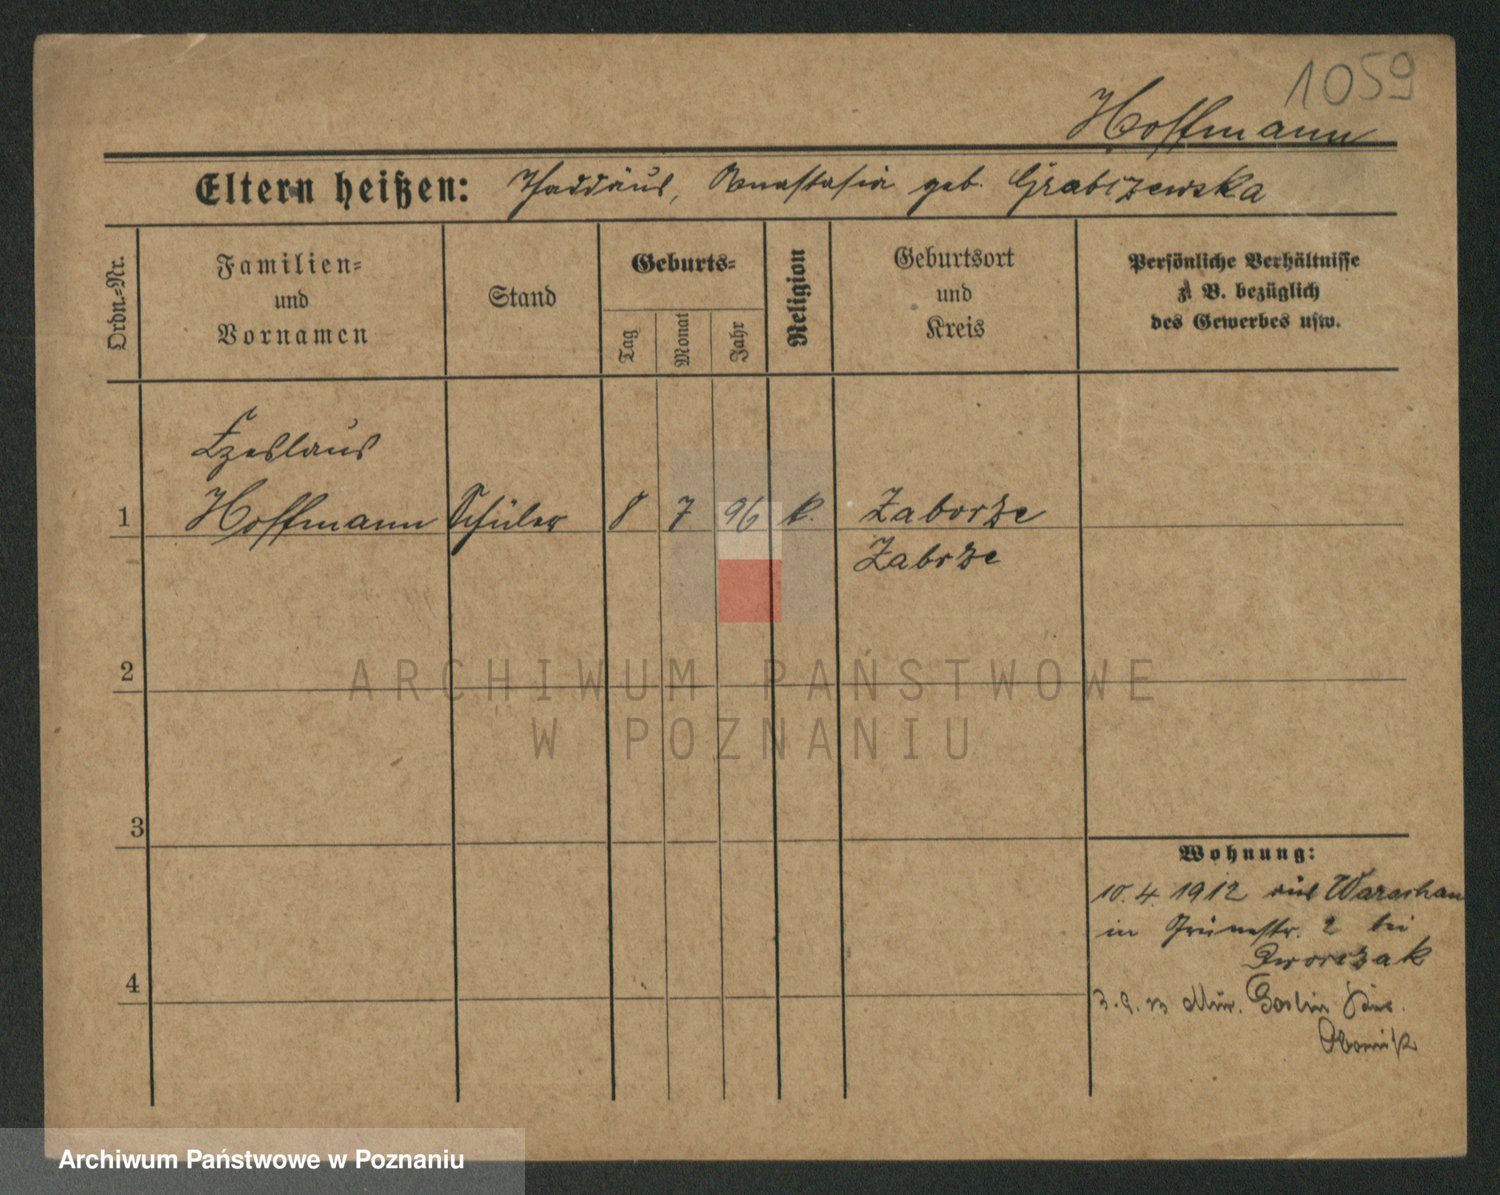 1059
Hoffmann
Eltern heißen: Thaddäus, Anastasia geb. Grabizewska
Ordn.=Nr.
Familien=
und
Vornamen
Stand
Geburts=
Tag
Monat
Jahr
Religion
Geburtsort
und
Kreis
Persönliche Verhältnisse
z. B. bezüglich
des Gewerbes usw.
Czeslaus
1 Hoffmann Schüler 8 7 96 k. Zaborze
Zabrze
2
ARCHIWUM PAŃSTWOWE
W POZNANIU
3
Wohnung:
10. 4. 1912 aus Warschau
in Grünestr. 2 bei
Dworczak
4
Mur. Goslin
Obornik
Archiwum Państwowe w Poznaniu